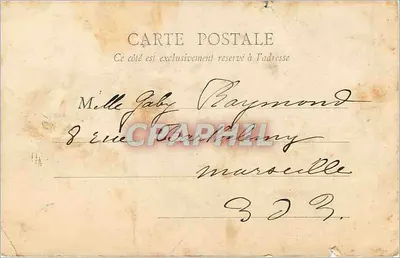 CARTE POSTALE
Ce côté est exclusivement reservé à l'adresse
Mlle Gaby Raymond
8 rue Barthélemy
CPAPHIL
Marseille
B d R.